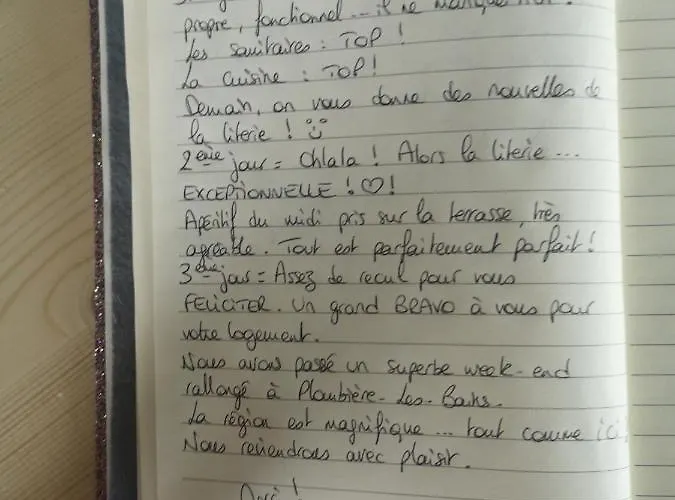 propre, fonctionnel... il ne manque
Les sanitaires : TOP !
La cuisine : TOP !
Demain, on vous donne des nouvelles de
la literie !
2ème jour = Ohlala ! Alors la literie ...
EXCEPTIONNELLE ! ♡ !
Apéritif du midi pris sur la terrasse, très
agréable. Tout est parfaitement parfait !
3ème jour = Assez de recul pour vous
FELICITER. Un grand BRAVO à vous pour
votre logement.
Nous avons passé un superbe week-end
rallongé à Plombière-Les-Bains.
La région est magnifique ... tout comme ici.
Nous reviendrons avec plaisir.